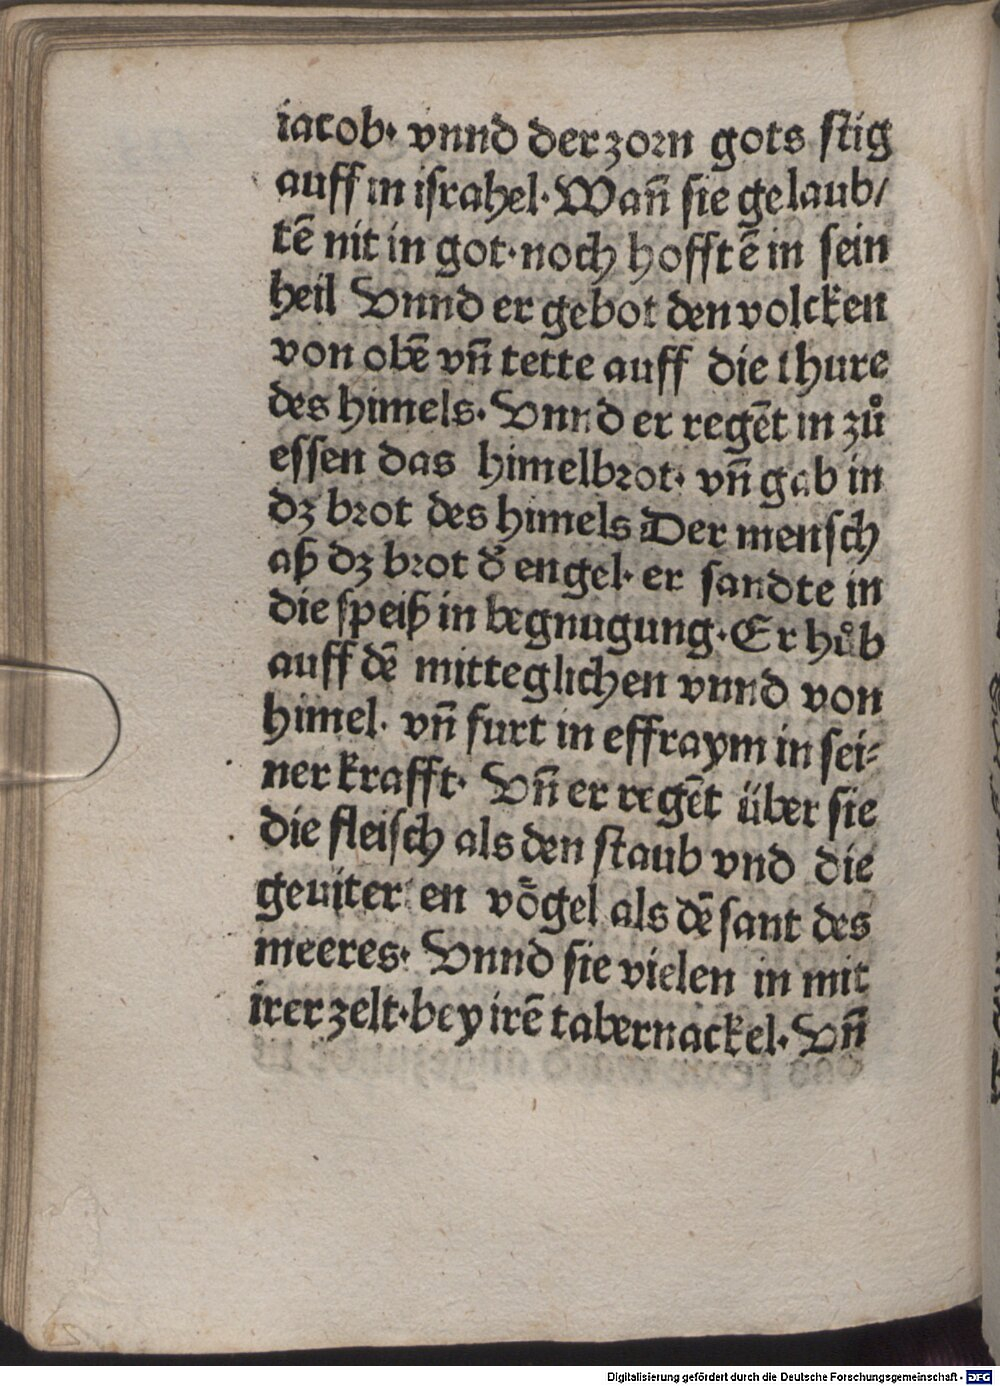 iacob· vnnd der zorn gots stig
auff in israhel· Wañ sie gelaub/
tē nit in got· noch hofftē in sein
heil Vnnd er gebot den volcken
von obē vñ tette auff die thure
des himels· Vnnd er regēt in zů
essen das himelbrot· vñ gab in
dz brot des himels Der mensch
aß dz brot d̄ engel· er sandte in
die speiß in begnugung· Er hůb
auff dē mitteglichen vnnd von
himel· vñ furt in effraym in sei⸗
ner krafft· Vñ er regēt über sie
die fleisch als den staub vnd die
en vögel als dē sant des
meeres· Vnnd sie vielen in mit
irer zelt· bey irē tabernackel· Vñ
Digitalisierung gefördert durch die Deutsche Forschungsgemeinschaft - DFG